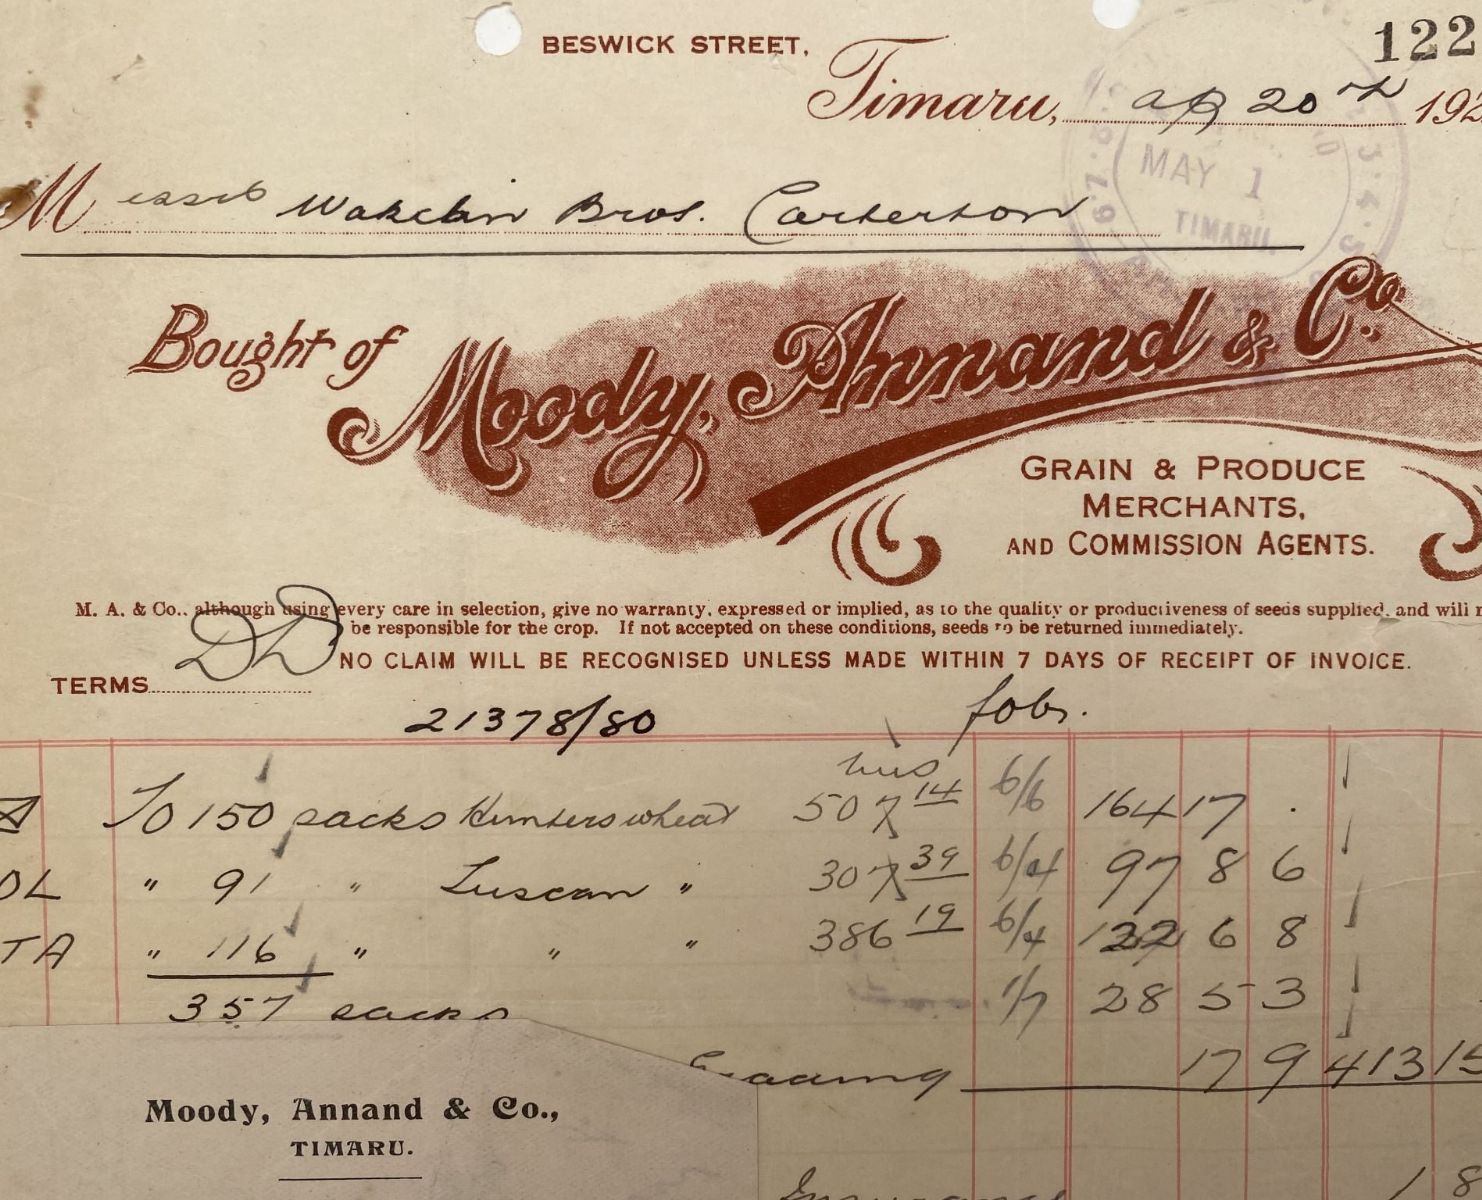 BESWICK STREET,
122
Timaru, ap 20th 192
MAY 1
TIMARU.
Messrs Wakelin Bros. Carterton
Bought of Moody, Annand & Co.
GRAIN & PRODUCE
MERCHANTS,
AND COMMISSION AGENTS.
M. A. & Co., although using every care in selection, give no warranty, expressed or implied, as to the quality or productiveness of seeds supplied, and will
be responsible for the crop. If not accepted on these conditions, seeds to be returned immediately.
NO CLAIM WILL BE RECOGNISED UNLESS MADE WITHIN 7 DAYS OF RECEIPT OF INVOICE.
TERMS DD
21378/80 fobs.
To 150 sacks Hunters wheat 507 14 6/6 164 17 .
OL " 91 " Tuscan " 307 39 6/4 97 8 6
TA " 116 " " " 386 19 6/4 122 6 8
357 sacks 1/7 28 5 3
17 9 413 15
Moody, Annand & Co.,
TIMARU.
Insurance 1 8